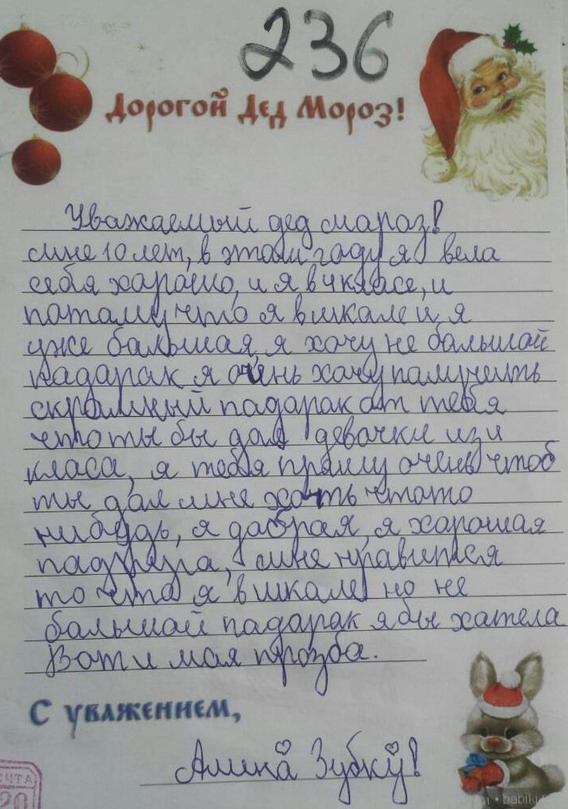 236
Дорогой Дед Мороз!
Уважаемый дед мараз!
мне 10 лет, в этом гаду я вела
себя харашо, и я в 4 класе, и
патаму что я в шкале и я
уже бальшая, я хачу не бальшой
падарак я очень хачу палучить
скромный падарак от тебя
что ты бы дал девачки из 4
класа, я тебя прашу очень чтоб
ты дал мне хоть штото
нибудь, я добрая, я харошая
падруга, мне нравится
то что я в шкале но не
бальшой падарак я бы хатела
Вот и мая прозба.
С уважением,
Алина Зубку!
ЧТА
20
babiki